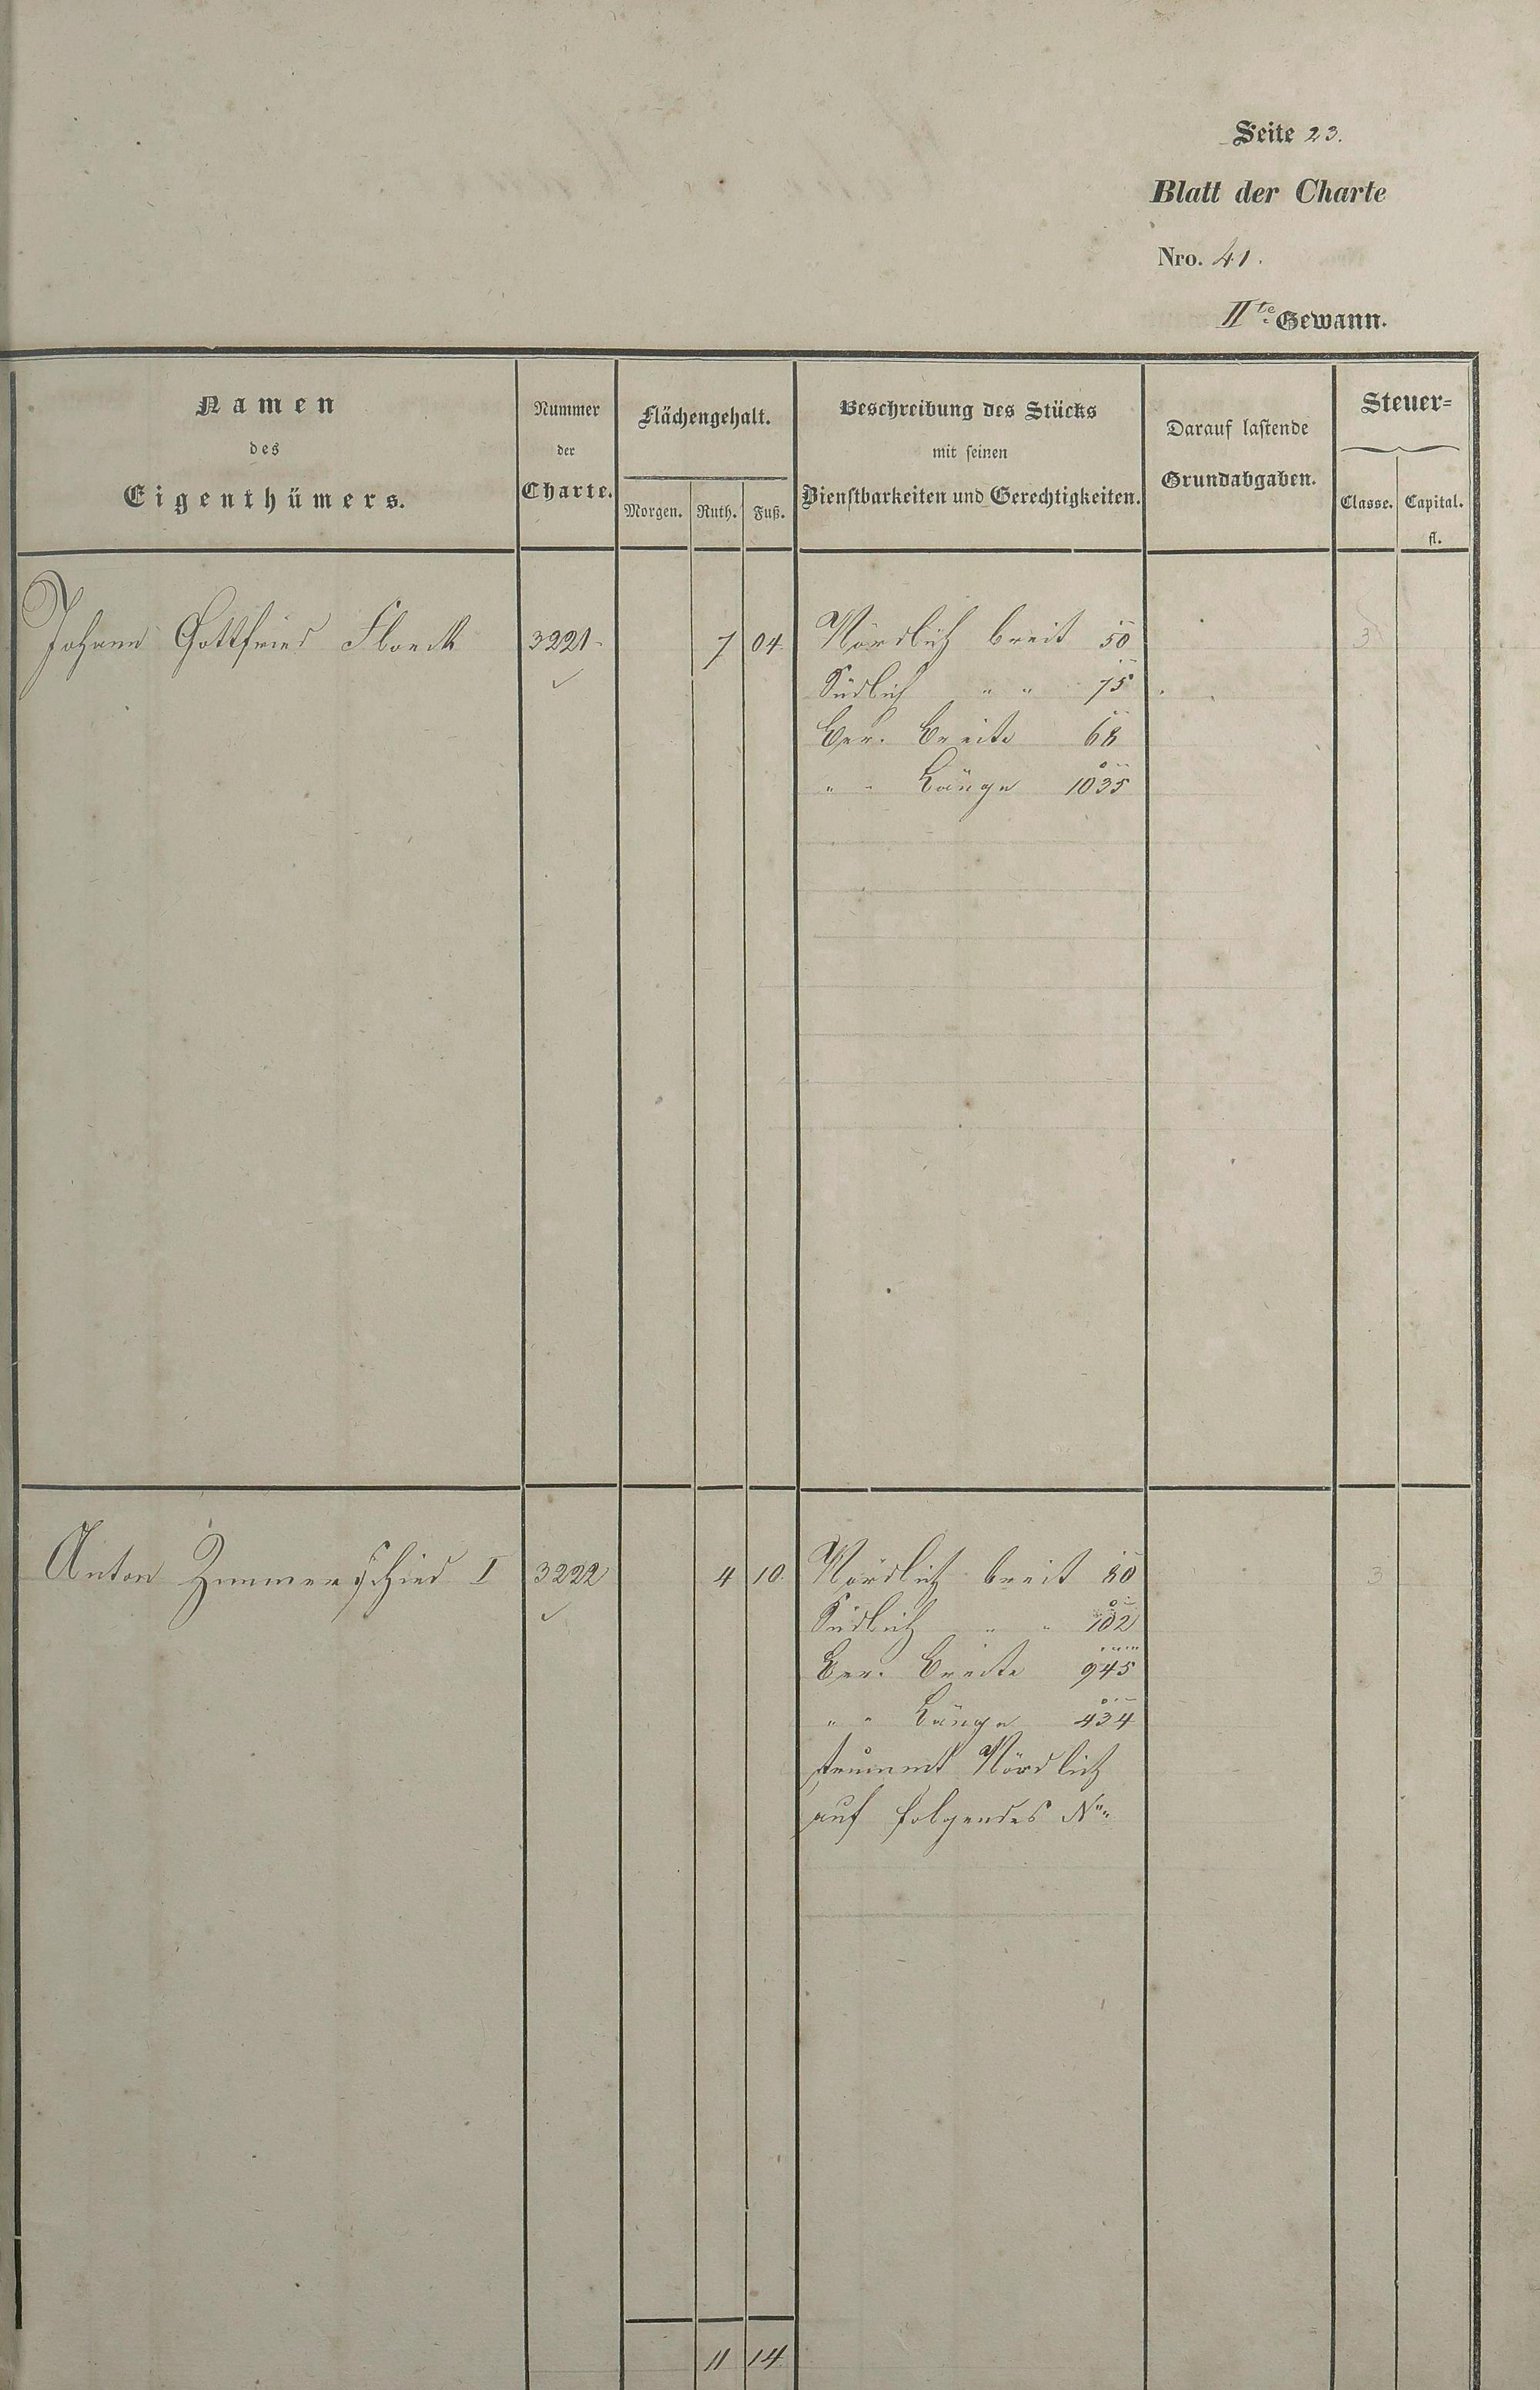 Seite 23.
Blatt der Charte
Nro. 41.
IIte Gewann.
Namen
des
Eigenthümers.
Nummer
der
Charte.
Flächengehalt.
Morgen. Ruth. Fuß.
Beschreibung des Stücks
mit seinen
Dienstbarkeiten und Gerechtigkeiten.
Darauf lastende
Grundabgaben.
Steuer=
Classe. Capital.
fl.
Johann Gottfried Floeck 3221 7 04 Nördlich breit 50 3
Südlich " " 75
Ber. Breite 68
" " Länge 1035
Anton Zimmerschied I 3222 4 10. Nördlich breit 80 3
Südlich " " 102
Ber. Breite 945
" " Länge 434
Nördlich
auf folgendes No
11 14